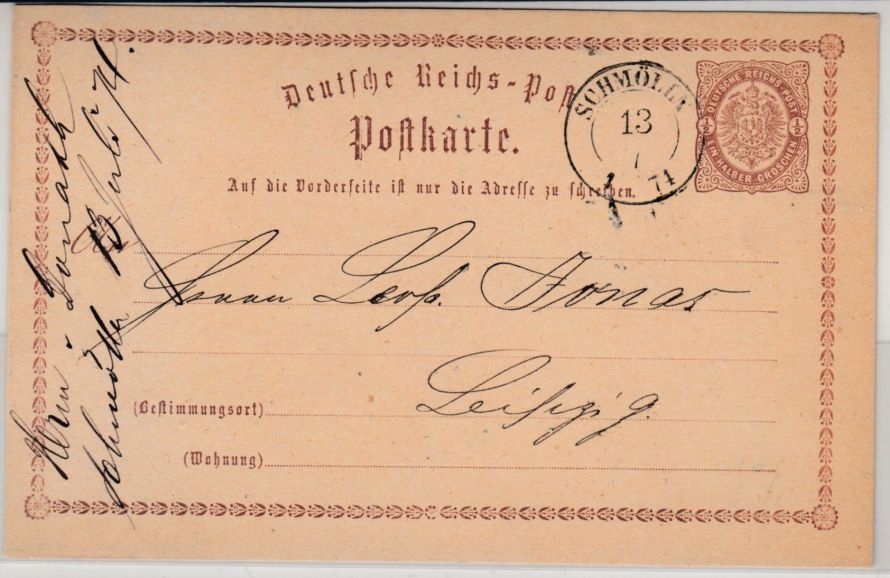 Deutsche Reichs-Post
Postkarte.
Auf die Vorderseite ist nur die Adresse zu schreiben.
SCHMÖLLN
13
7
74
DEUTSCHE REICHS-POST
½ ½
EIN HALBER GROSCHEN
An
Herrn Leop. Jonas
Leipzig.
(Bestimmungsort)
(Wohnung)
Schmölln 13 Juli 74.